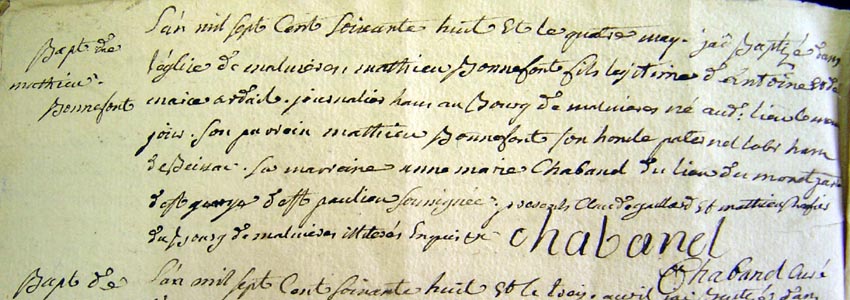 Bapt de
mathieu
Bonnefont
L'an mil sept Cent Soixante huit Et le quatre may. jaÿ Baptizé dans
l'église de malvieres, mathieu Bonnefont fils legitime d'Antoine Et de
marie journalier hans au Bourg de malvieres né aud. lieu le meme
jour. Son parrain mathieu Bonnefont Son honcle paternel labr hans
de Beissac. Sa marreine anne marie Chabanel du lieu du
d'est paulien Soussignée, presents Claude gallard Et mathieu
du Bourg de malvieres illiterés Enquis &
Chabanel
Chabanel Curé
Bapt de
L'an mil sept Cent Soixante huit Et le avril jaÿ